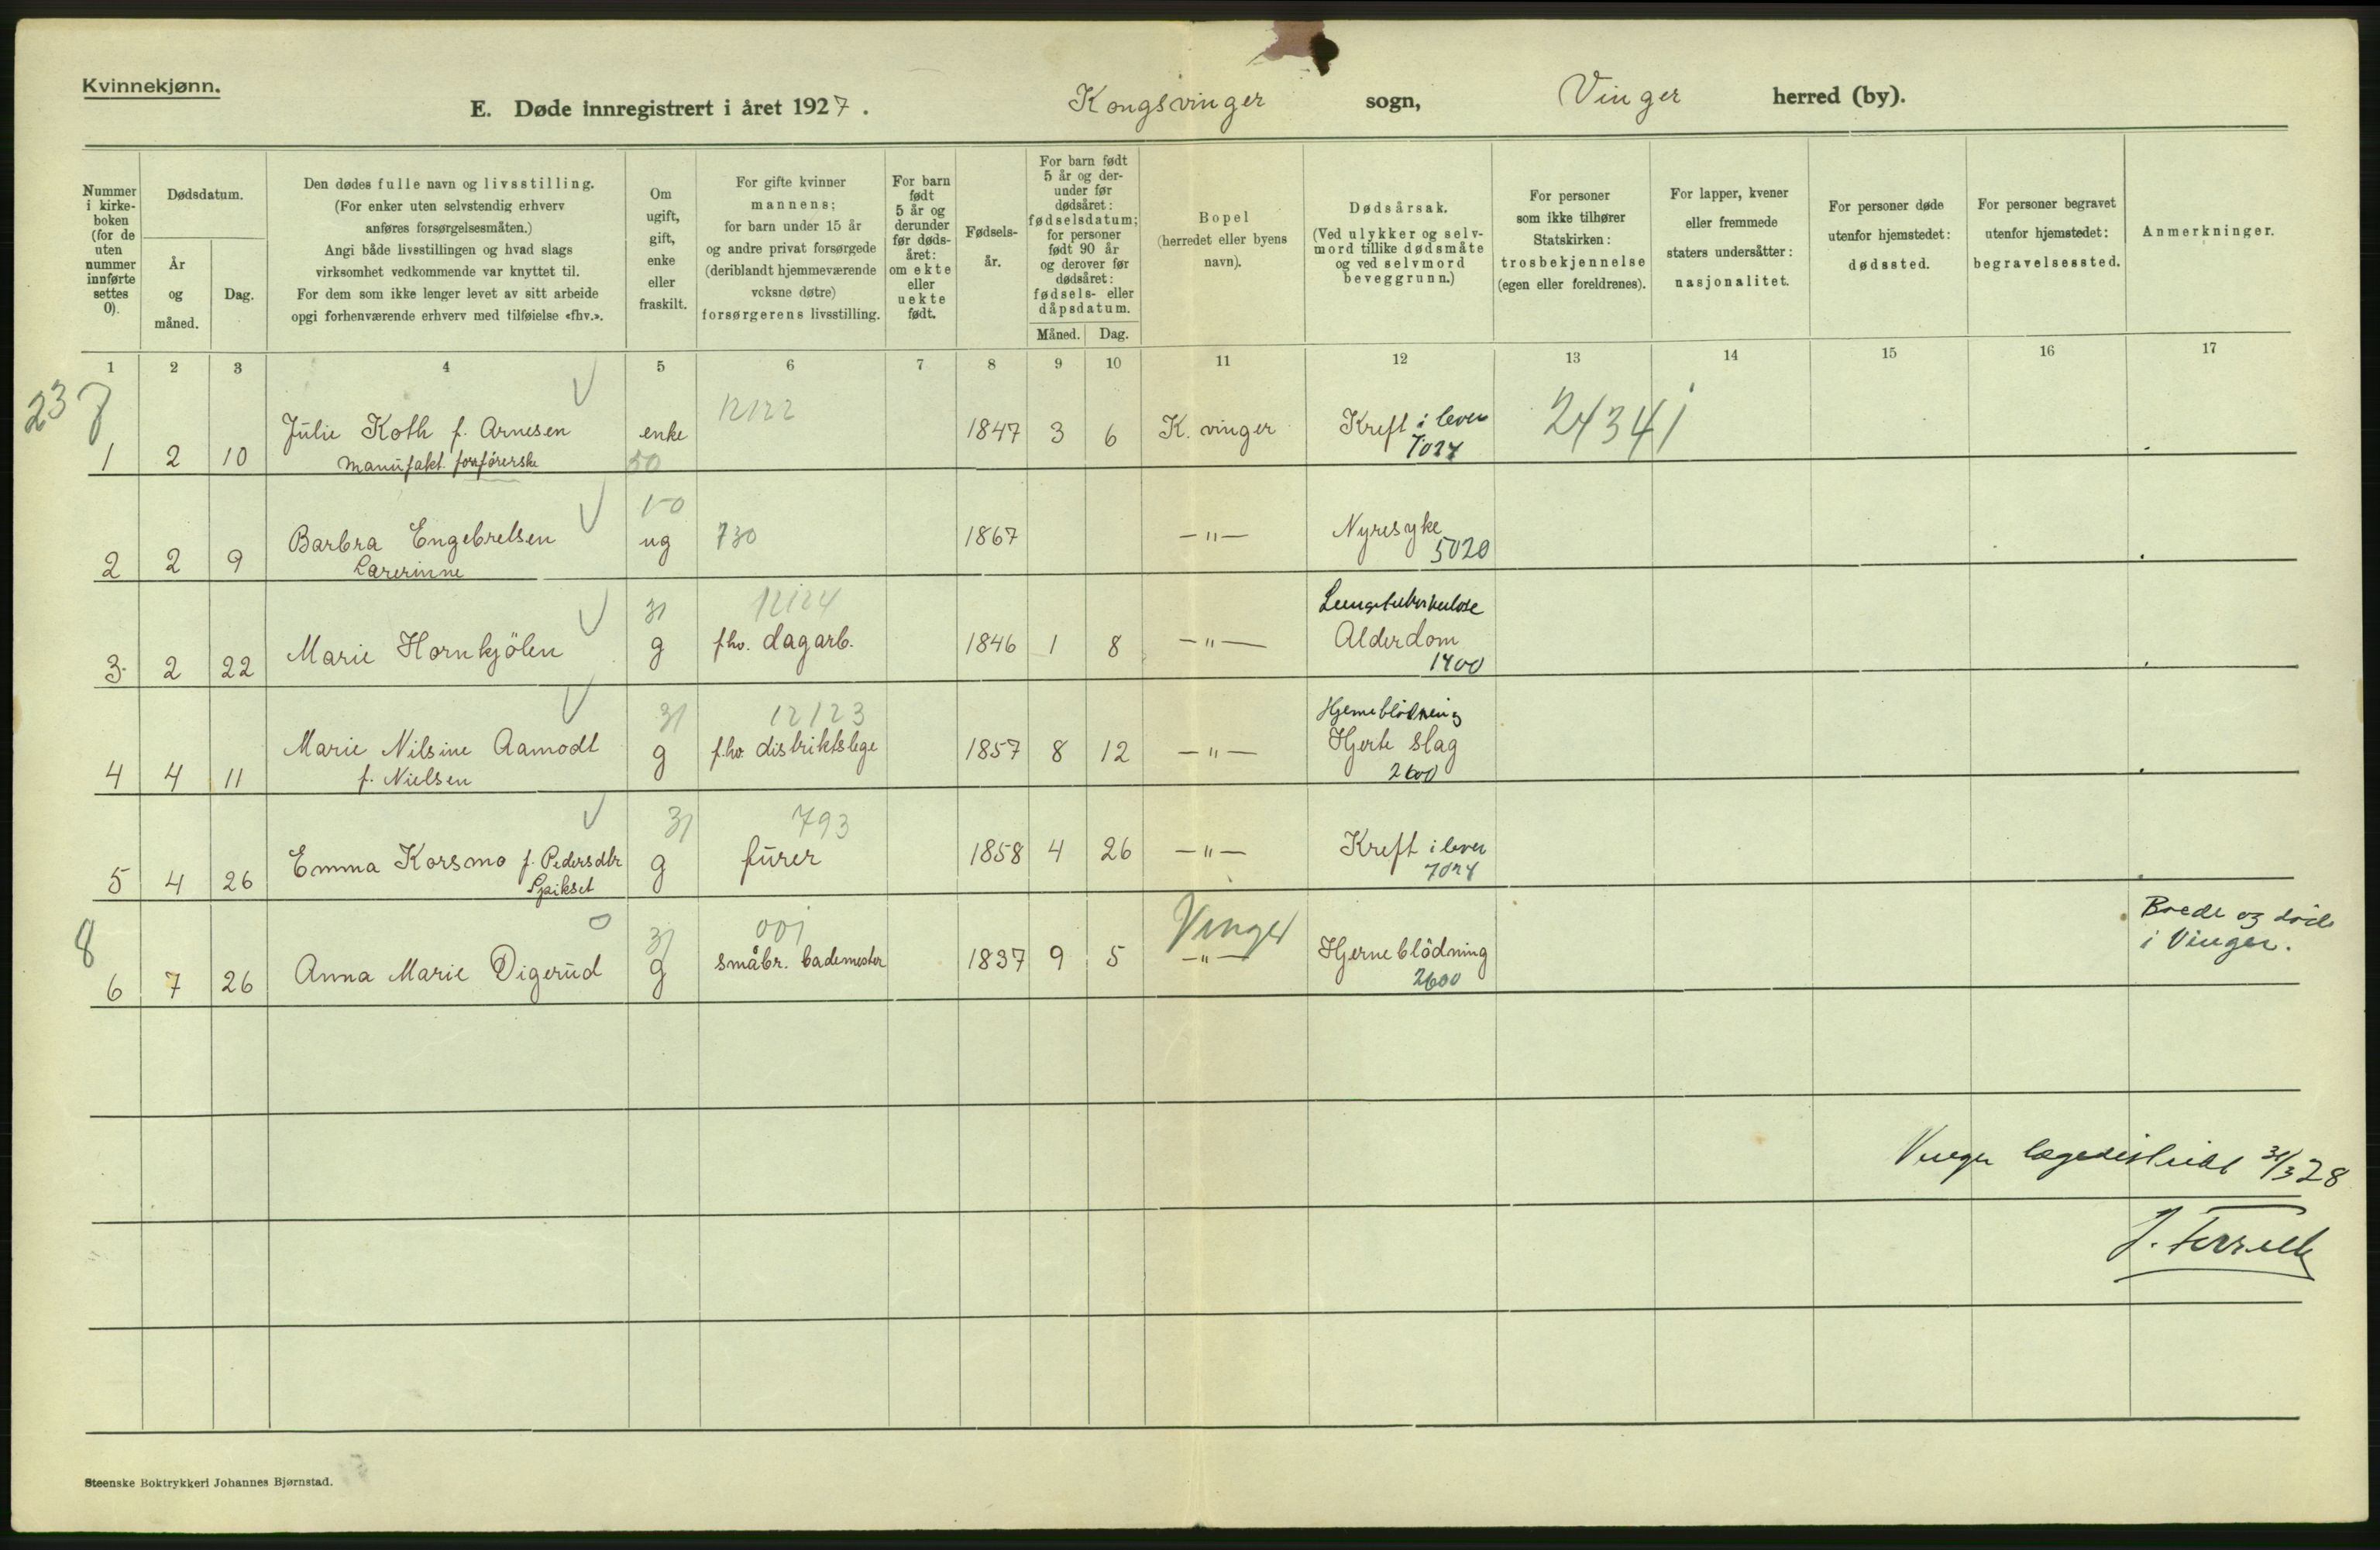 Kvinnekjønn.
E. Døde innregistrert i året 1927. Kongsvinger sogn, Vinger herred (by).
Nummer i kirke-boken (for de uten nummer innførte settes 0).
Dødsdatum.
År og måned.
Dag.
Den dødes fulle navn og livsstilling.
(For enker uten selvstendig erhverv
anføres forsørgelsesmåten.)
Angi både livsstillingen og hvad slags
virksomhet vedkommende var knyttet til.
For dem som ikke lenger levet av sitt arbeide
opgi forhenværende erhverv med tilføielse «fhv.».
Om ugift, gift, enke eller fraskilt.
For gifte kvinner
mannens;
for barn under 15 år
og andre privat forsørgede
(deriblandt hjemmeværende
voksne døtre)
forsørgerens livsstilling.
For barn født 5 år og derunder før døds-året: om ekte eller uekte født.
Fødsels-år.
For barn født 5 år og der-under før dødsåret: fødselsdatum; for personer født 90 år og derover før dødsåret: fødsels- eller dåpsdatum.
Måned. Dag.
Bopel
(herredet eller byens
navn).
Dødsårsak.
(Ved ulykker og selv-
mord tillike dødsmåte
og ved selvmord
beveggrunn.)
For personer
som ikke tilhører
Statskirken:
trosbekjennelse
(egen eller foreldrenes).
For lapper, kvener
eller fremmede
staters undersåtter:
nasjonalitet.
For personer døde
utenfor hjemstedet:
dødssted.
For personer begravet
utenfor hjemstedet:
begravelsessted.
Anmerkninger.
1 2 3 4 5 6 7 8 9 10 11 12 13 14 15 16 17
23 7
12122
1 2 10 Julie Koth f. Arnesen enke 1847 3 6 K. vinger Kreft i lever 24341
Manufakt. 50 7024
10
2 2 9 Barbra Engebretsen ug 730 1867 —"— Nyresyke
Lærerinne 5020
31 12124 Lungetuberkulose
3 2 22 Marie Hornkjölen g fhv. dagarb. 1846 1 8 —"— Alderdom
1400
31 12123 Hjerneblödning
4 4 11 Marie Nilsine Aamodt g fhv. distriktslege 1857 8 12 —"— Hjerte slag
f. Nielsen 2600
31 793
5 4 26 Emma Korsmo f. Pedersdtr g furer 1858 4 26 —"— Kreft i lever
7024
8 31 001 Vinger
6 7 26 Anna Marie Digerud g småbr. bademester 1837 9 5 —"— Hjerneblödning
2600
i Vinger.
Vinger lægedistrikt 31/3 28
Steenske Boktrykkeri Johannes Bjørnstad.